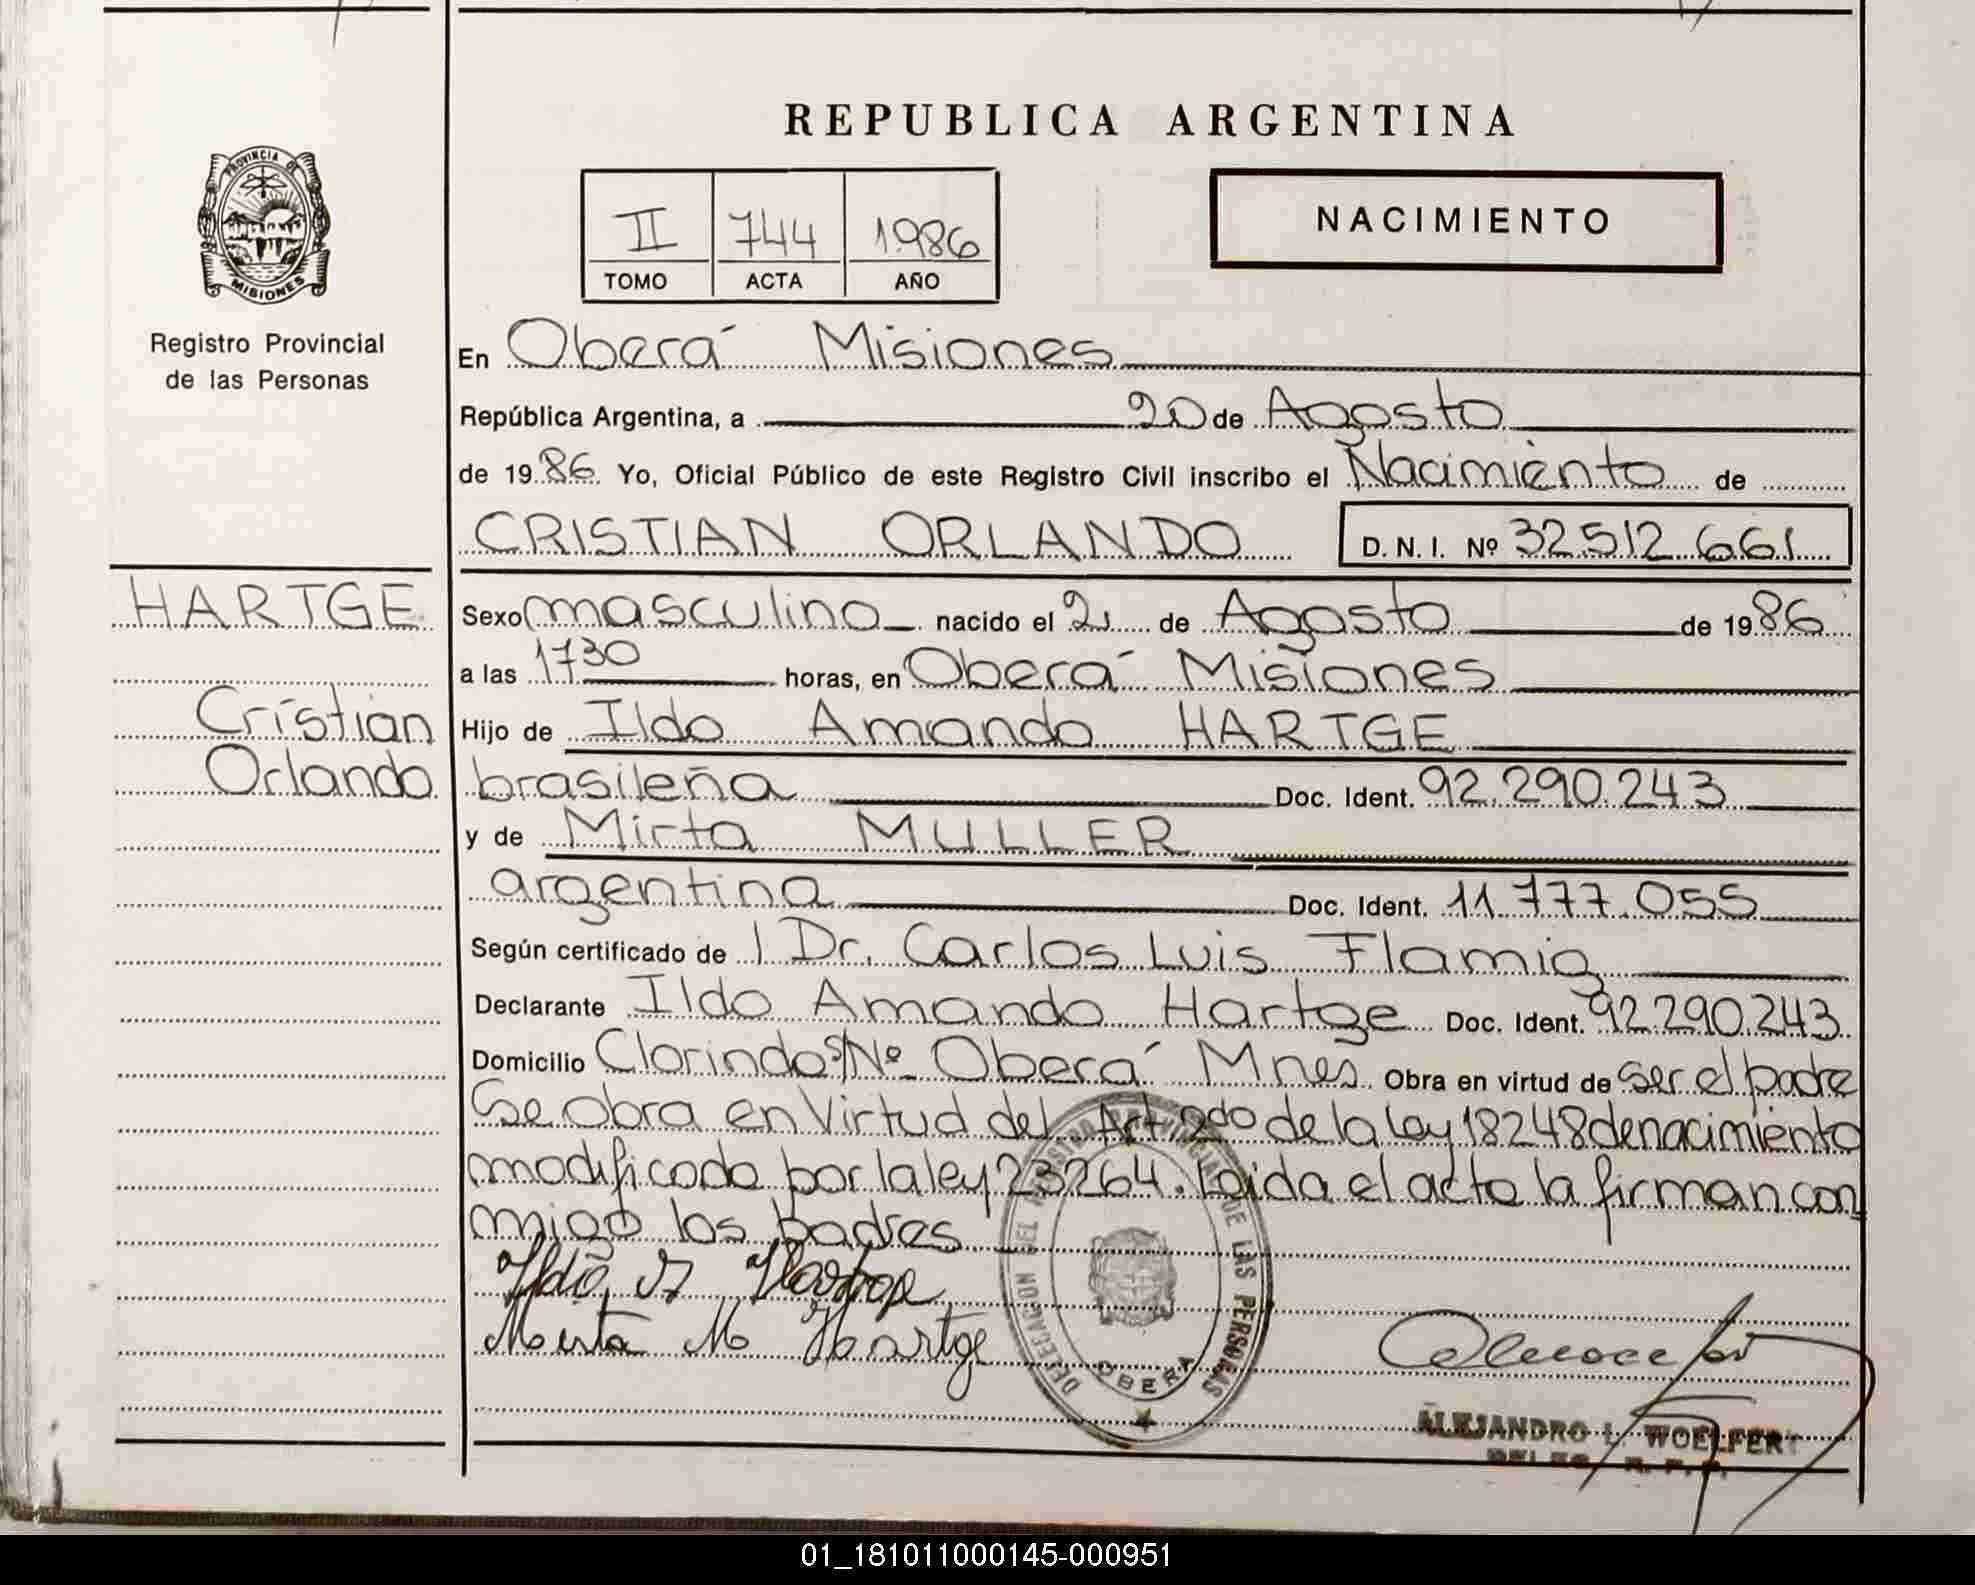 REPUBLICA ARGENTINA
PROVINCIA DE
MISIONES
Registro Provincial
de las Personas
II 744 1986
TOMO ACTA AÑO
NACIMIENTO
En Oberá Misiones
República Argentina, a 20 de Agosto
de 1986 Yo, Oficial Público de este Registro Civil inscribo el Nacimiento de
CRISTIAN ORLANDO D.N.I. Nº 32512661
HARTGE
Cristian
Orlando
Sexo masculino nacido el 2 de Agosto de 1986
a las 1730 horas, en Oberá Misiones
Hijo de Ildo Amando HARTGE
brasileña Doc. Ident. 92.290.243
y de Mirta MULLER
argentina Doc. Ident. 11.777.055
Según certificado de Dr. Carlos Luis Flamig
Declarante Ildo Amando Hartge Doc. Ident. 92290243
Domicilio Clorindo S/Nº Oberá Mnes Obra en virtud de ser el padre
Se obra en Virtud del Art. 2do de la ley 18248 de nacimiento
modificado por la ley 23264. Leida el acta la firman con
migo los padres
Ildo A Hartge
Mirta M Hartge
DELEGACION DEL REGISTRO PROVINCIAL DE LAS PERSONAS
OBERA
ALEJANDRO L. WOELFERT
01_181011000145-000951